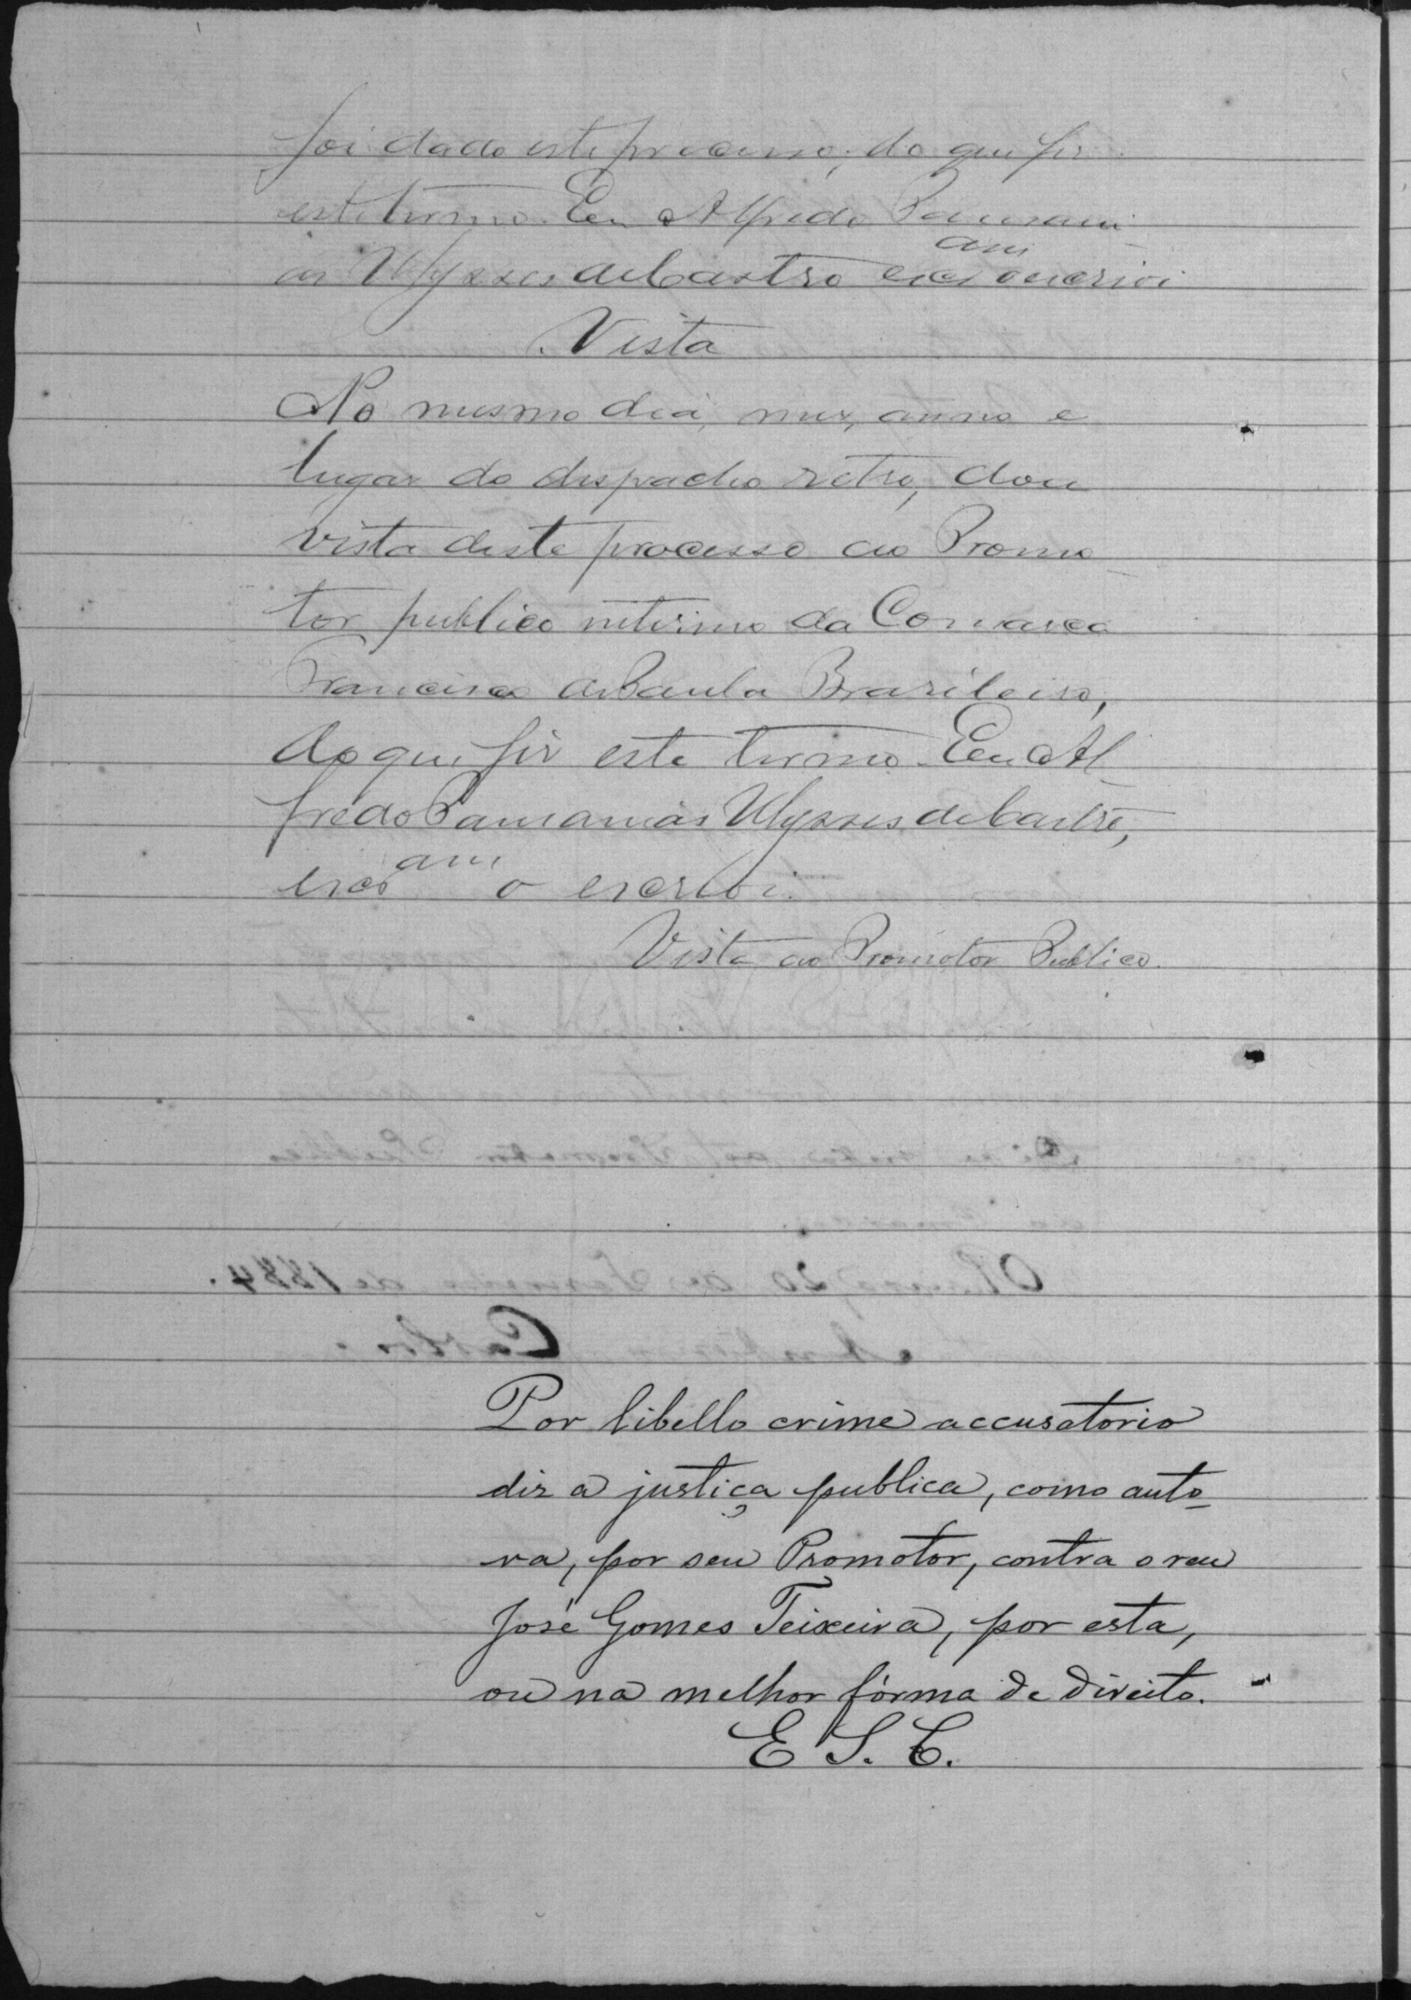 foi dado este processo; do que fiz
este termo. Eu Alfredo Pausani
as Ulysses de Castro escram o escrivi
Vista
No mesmo dia, mez, anno e
lugar do despacho retro, dou
vista deste processo ao Promo
tor publico interino da Comarca
Francisco de Paula Brasileiro,
do que fiz este termo. Eu Al
fredo Pausanias Ulysses de Castro,
escram o escrevi.
Vista ao Promotor Publico.
Por libello crime accusatorio
diz a justiça publica, como auto
ra, por seu Promotor, contra o reu
José Gomes Teixeira, por esta,
ou na melhor fórma de direito.
E S. C.